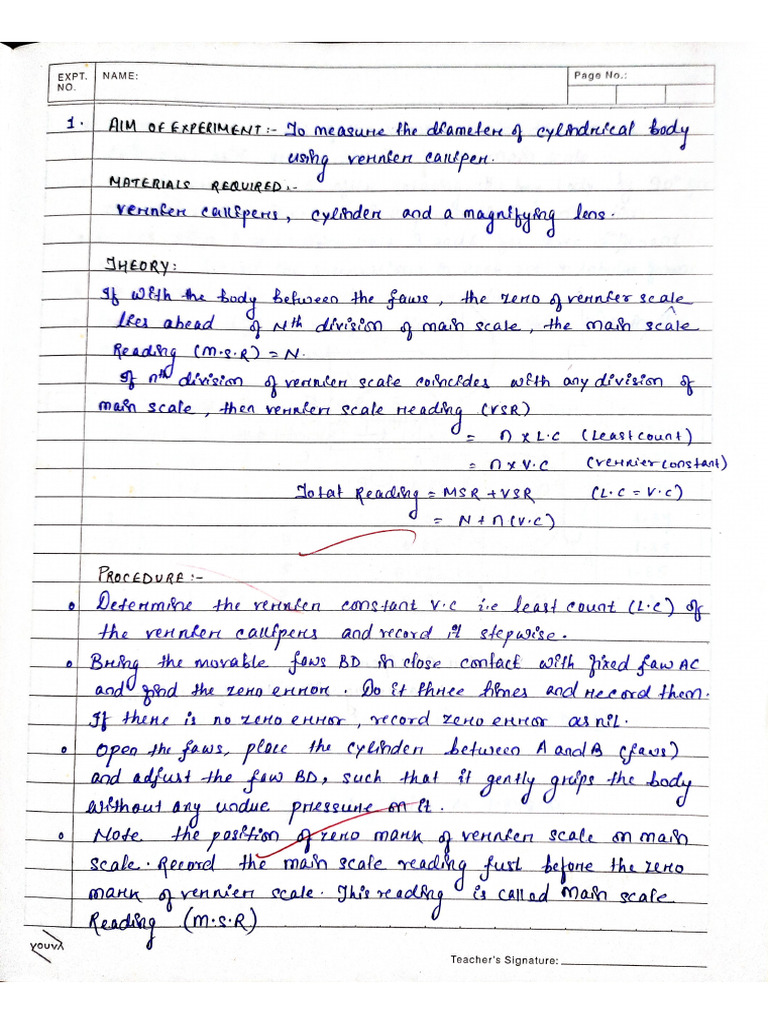 EXPT. NO. NAME: Page No.:
1. AIM OF EXPERIMENT:- To measure the diameter of cylindrical body
using vernier calliper.
MATERIALS REQUIRED:-
vernier callipers, cylinder and a magnifying lens.
THEORY:
If with the body between the jaws, the zero of vernier scale
lies ahead of Nth division of main scale, the main scale
Reading (M.S.R) = N.
If nth division of vernier scale coincides with any division of
main scale, then vernier scale reading (VSR)
= n x L.C (Least count)
= n x V.C (vernier constant)
Total Reading = MSR + VSR (L.C = V.C)
= N + n (V.C)
PROCEDURE:-
Determine the vernier constant V.C i.e least count (L.C) of
the vernier callipers and record it stepwise.
Bring the movable jaws BD in close contact with fixed jaw AC
and find the zero error. Do it three times and record them.
If there is no zero error, record zero error as nil.
Open the jaws, place the cylinder between A and B (jaws)
and adjust the jaw BD, such that it gently grips the body
without any undue pressure on it.
Note the position of zero mark of vernier scale on main
scale. Record the main scale reading just before the zero
mark of vernier scale. This reading is called Main scale
Reading (M.S.R)
youva
Teacher's Signature: